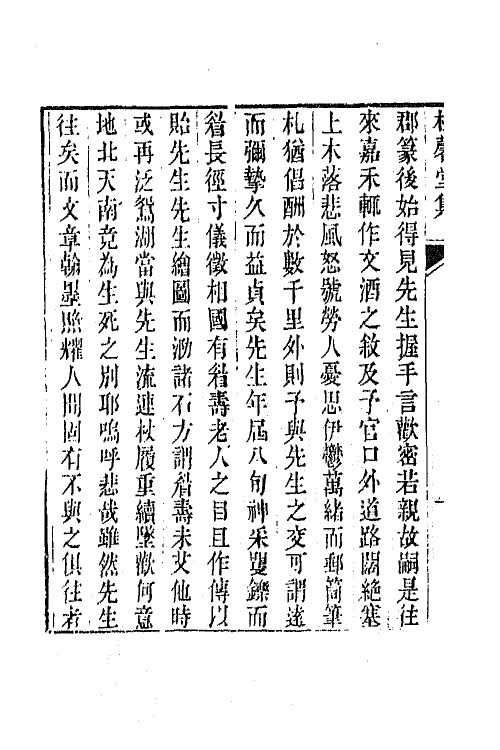 桂馨堂集
郡篆後始得見先生握手言歡密若親故嗣是往
來嘉禾輒作文酒之敘及予官口外道路闊絶塞
上木落悲風怒號勞人憂思伊鬱萬緒而郵筒筆
札猶倡酬於數千里外則予與先生之交可謂遠
而彌摯久而益貞矣先生年屆八旬神采矍鑠而
眉長徑寸儀徵相國有眉壽老人之目且作傳以
貽先生先生繪圖而泐諸石方謂眉壽未艾他時
或再泛鴛湖當與先生流連杖履重續墜歡何意
地北天南竟為生死之别耶嗚呼悲哉雖然先生
往矣而文章翰墨照耀人間固有不與之俱往者